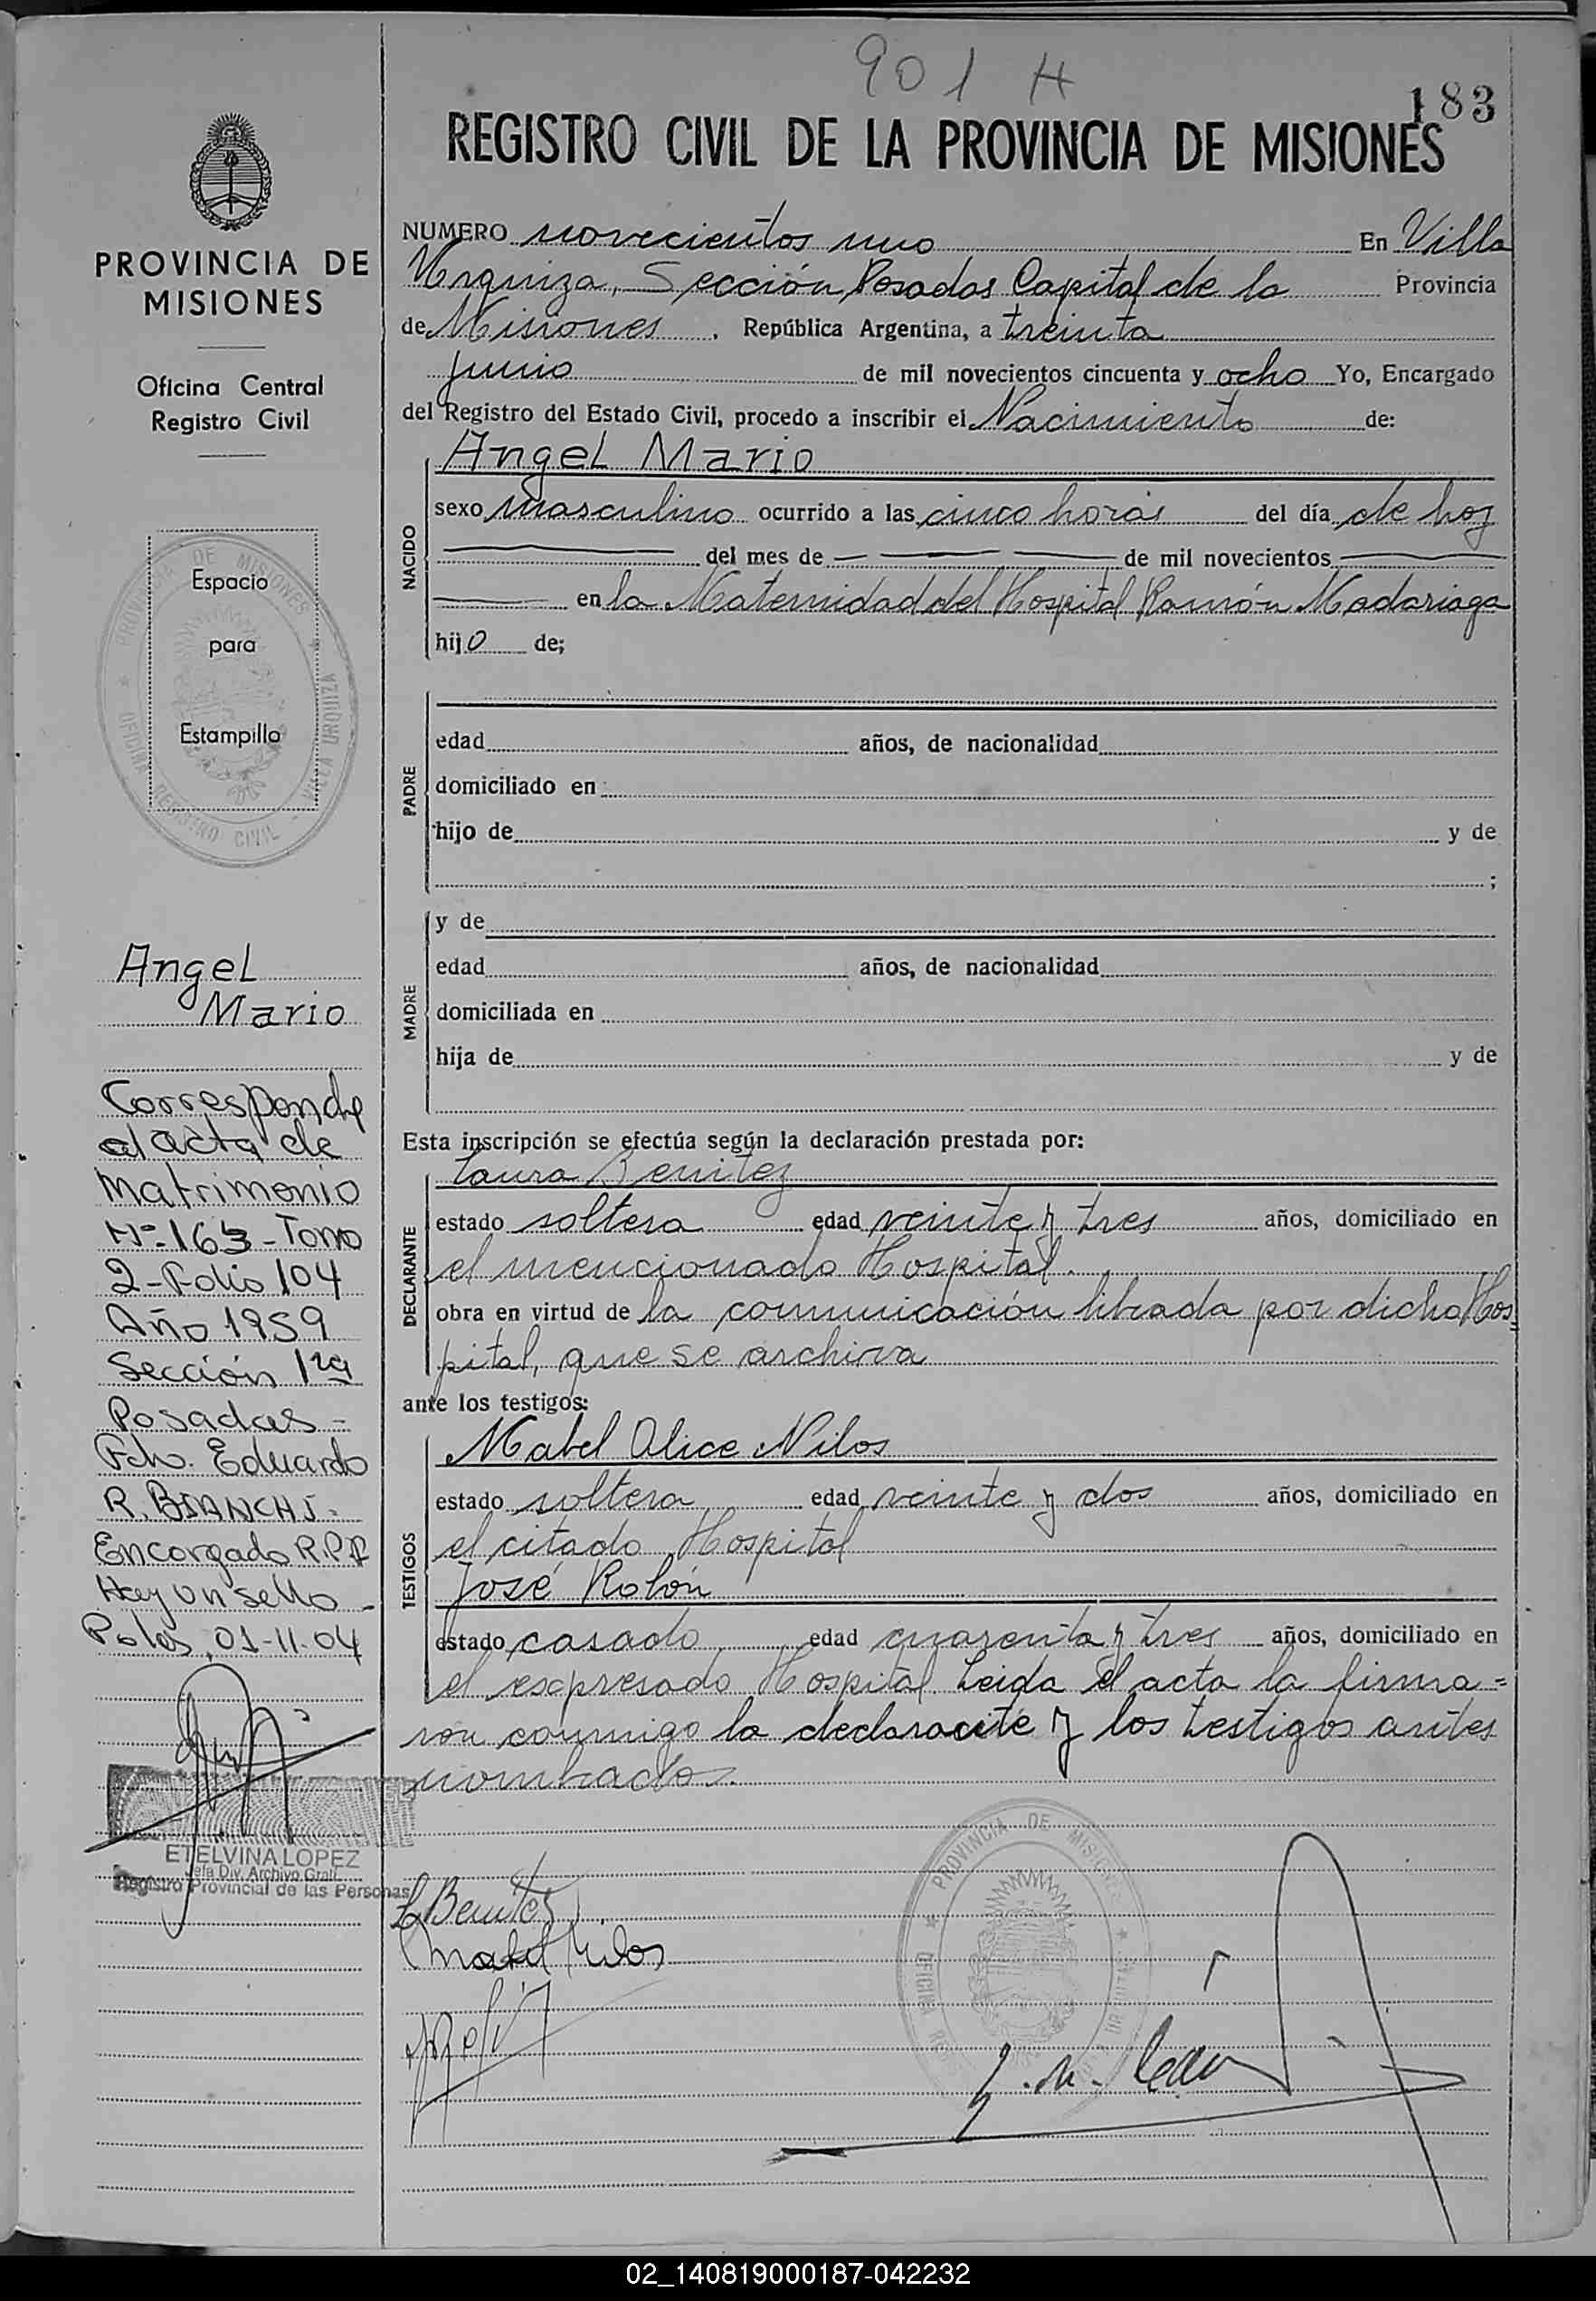 901 H
183
REGISTRO CIVIL DE LA PROVINCIA DE MISIONES
PROVINCIA DE
MISIONES
Oficina Central
Registro Civil
Espacio
para
Estampilla
PROVINCIA DE MISIONES
OFICINA REGISTRO CIVIL - VILLA URQUIZA
Angel
Mario
Corresponde
al acta de
Matrimonio
Nº 163 - Tomo
2 - Folio 104
Año 1959
Sección 1ra
Posadas -
Fdo. Eduardo
R. BIANCHI -
Encargado R.P.P
Hay un sello -
Pdas, 01-11-04
ETELVINA LOPEZ
Jefa Div. Archivo Gral.
Registro Provincial de las Personas
NUMERO novecientos uno En Villa
Urquiza, Sección Posadas Capital de la Provincia
de Misiones, República Argentina, a treinta
junio de mil novecientos cincuenta y ocho Yo, Encargado
del Registro del Estado Civil, procedo a inscribir el Nacimiento de:
NACIDO
Angel Mario
sexo masculino ocurrido a las cinco horas del día de hoy
del mes de de mil novecientos
en la Maternidad del Hospital Ramón Madariaga
hijo de;
PADRE
edad años, de nacionalidad
domiciliado en
hijo de y de
;
MADRE
y de
edad años, de nacionalidad
domiciliada en
hija de y de
Esta inscripción se efectúa según la declaración prestada por:
DECLARANTE
Laura Benitez
estado soltera edad veinte y tres años, domiciliado en
el mencionado Hospital.
obra en virtud de la comunicación librada por dicho Hos=
pital, que se archiva
ante los testigos:
TESTIGOS
Mabel Alice Nilos
estado soltera edad veinte y dos años, domiciliado en
el citado Hospital
José Rolón
estado casado edad cuarenta y tres años, domiciliado en
el expresado Hospital. Leida el acta la firma=
ron conmigo la declarante y los testigos antes
nombrados.
L Benitez
Mabel Nilos
PROVINCIA DE MISIONES
02_140819000187-042232